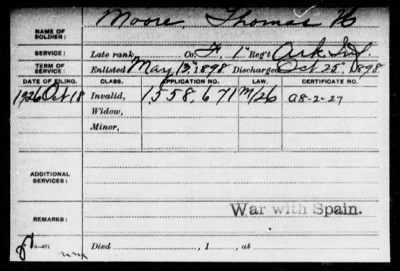 NAME OF SOLDIER: Moore, Thomas H
SERVICE: Late rank, Co. F, 1" Reg't Ark Inf.
TERM OF SERVICE: Enlisted May 13", 1898 Discharged Oct 25", 1898
DATE OF FILING. CLASS. APPLICATION NO. LAW. CERTIFICATE NO.
1926 Oct 18 Invalid, 1,558,671 M/26 a8-2-27
Widow,
Minor,
ADDITIONAL SERVICES:
War with Spain.
REMARKS:
Died , 1 , at